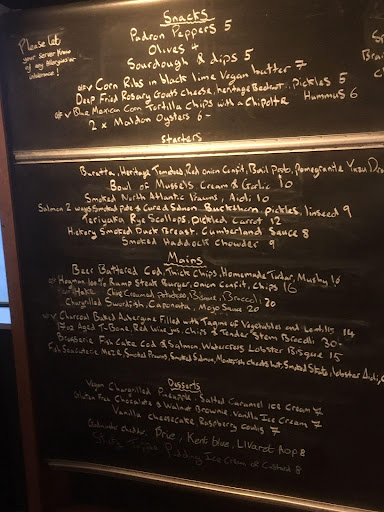 Snacks
Padron Peppers 5
Olives 4
Please let
your server know
of any Allergies or
intolerance!
Sourdough & dips 5
Corn Ribs in black lime Vegan butter 7
Deep Fried Rosary Goats cheese, heritage Beetroot, pickles 5
Blue Mexican Corn Tortilla Chips with a Chipotle Hummus 6
2 x Maldon Oysters 6 -
Starters
Burrata, Heritage Tomatoes, Red onion Confit, Basil pesto, Pomegranate Yuzu
Bowl of Mussels Cream & Garlic 10
Smoked North Atlantic Prawns, Aioli 10
Salmon 2 ways Smoked pate & Cured Salmon Buckthorn, pickles, linseed 9
Teriyaki Rye Scallops, Pickled Carrot 12
Hickory Smoked Duck Breast, Cumberland Sauce 8
Smoked Haddock Chowder 9
Mains
Beer Battered Cod, Thick Chips, Homemade Tartar, Mushy 16
100% Rump Steak Burger, onion Confit, Chips 16
Hake Chive Creamed potatoes, Bisque, Broccoli 20
Chargrilled Swordfish, Caponata, Mojo Sauce 20
Charcoal Baked Aubergine Filled with Tagine of Vegetables and Lentils 14
17oz Aged T-Bone, Red wine jus, Chips & Tender Stem Brocolli 30-
Brasserie Fish Cake Cod & Salmon Watercress, Lobster Bisque 15
Smoked Prawns, Smoked Salmon,
Desserts
Vegan Chargrilled Pineapple, Salted Caramel Ice Cream 7
Gluten Free Chocolate & Walnut Brownie Vanilla Ice Cream 7
Vanilla Cheesecake, Raspberry Coulis 7
Cheddar, Brie, Kent blue, Livarot AOP 8
Sticky Toffee Pudding Ice Cream or Custard 8